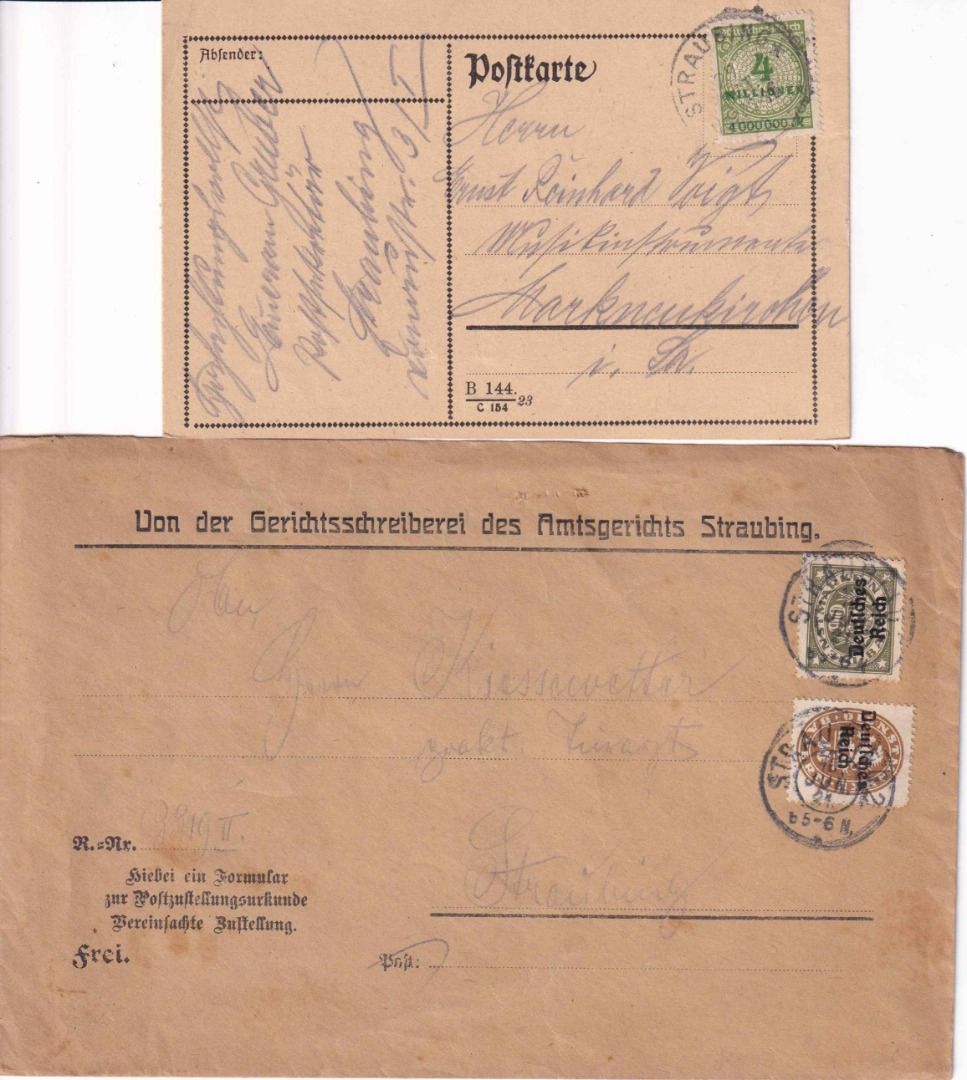 Absender:
Emeram Gruber
Postsekretär
Straubing
Postkarte
STRAUBING
Deutsches Reich
4
MILLIONEN
4000000 M
Herrn
Ernst Reinhard Voigt
Musikinstrumente
Markneukirchen
i. Sa.
B 144. 23
C 154
Von der Gerichtsschreiberei des Amtsgerichts Straubing.
Deutsches
Reich
An
Herrn Kiessewetter
prakt. Tierarzt
Deutsches
Reich
JUN
21
5-6 N.
R.-Nr.
Hiebei ein Formular
zur Postzustellungsurkunde
Vereinfachte Zustellung.
Straubing
Frei.
Post: